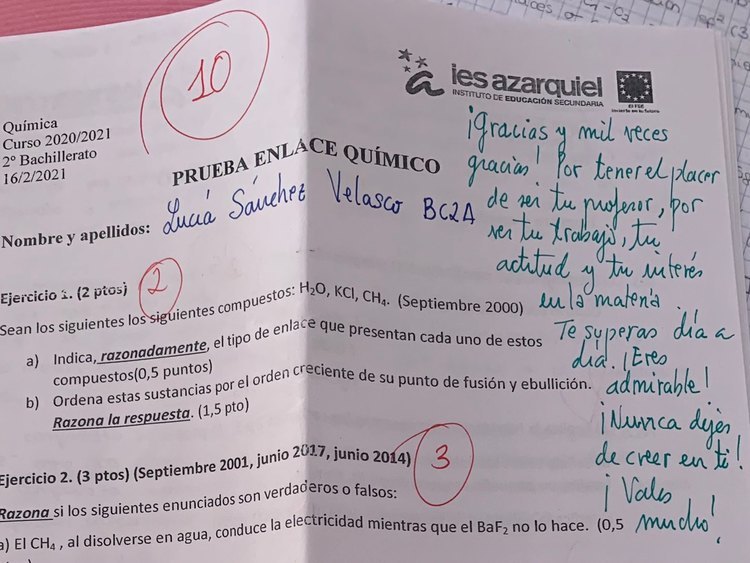 10
ies azarquiel
INSTITUTO DE EDUCACIÓN SECUNDARIA
Química
Curso 2020/2021
2º Bachillerato
16/2/2021
PRUEBA ENLACE QUÍMICO
Nombre y apellidos: Lucía Sánchez Velasco BC2A
¡Gracias y mil veces
gracias! Por tener el placer
de ser tu profesor, por
ser tu trabajo, tu
actitud y tu interés
en la materia.
Te superas día a
día. ¡Eres
admirable!
¡Nunca dejes
de creer en ti!
¡Vales
mucho!
Ejercicio 1. (2 ptos) 2
Sean los siguientes los siguientes compuestos: H₂O, KCl, CH₄. (Septiembre 2000)
a) Indica, razonadamente, el tipo de enlace que presentan cada uno de estos
compuestos(0,5 puntos)
b) Ordena estas sustancias por el orden creciente de su punto de fusión y ebullición.
Razona la respuesta. (1,5 pto)
Ejercicio 2. (3 ptos) (Septiembre 2001, junio 2017, junio 2014) 3
Razona si los siguientes enunciados son verdaderos o falsos:
a) El CH₄ , al disolverse en agua, conduce la electricidad mientras que el BaF₂ no lo hace. (0,5